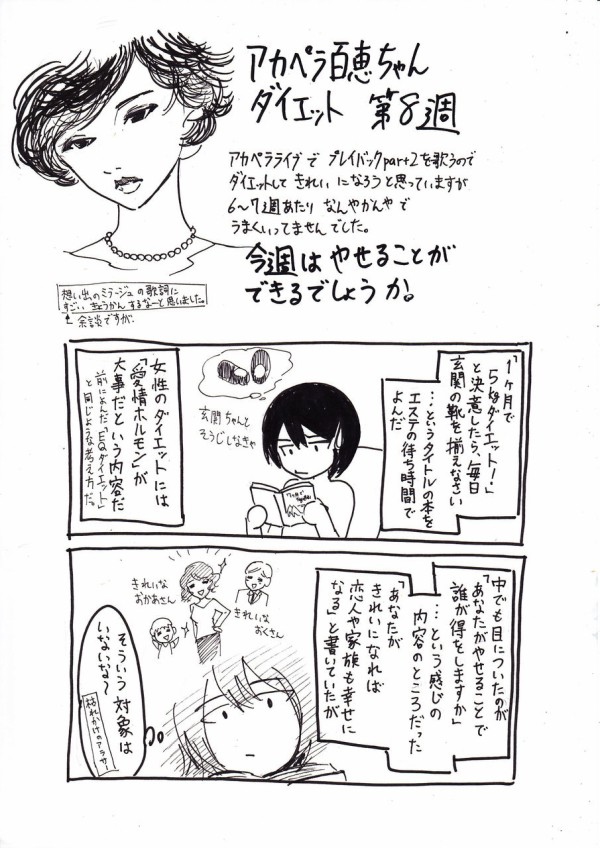 アカペラ百恵ちゃん
ダイエット 第8週
アカペラライブで プレイバックpart2を歌うので
ダイエットして きれいになろうと思っていますが
6〜7週あたり なんやかんやで
うまくいってませんでした。
今週は やせることが
できるでしょうか。
想い出のミラージュの歌詞に
すごい きょうかんするなーと思いました。
余談ですが
「1ヶ月で
5kgダイエット!」
と決意したら、毎日
玄関の靴を揃えなさい
…というタイトルの本を
エステの待ち時間で
よんだ
玄関ちゃんと
そうじしなきゃ
女性のダイエットには
「愛情ホルモン」が
大事だという内容だ
前によんだ「EQダイエット」
と同じような考え方だ。
「中でも目についたのが
あなたがやせることで
誰が得をしますか」
…という感じの
内容のところだった
「あなたが
きれいになれば
恋人や家族も幸せに
なる」と書いていたが
きれいな
おかあさん
きれいな
おくさん
そういう対象は
いないな〜
枯れかけのアラサー